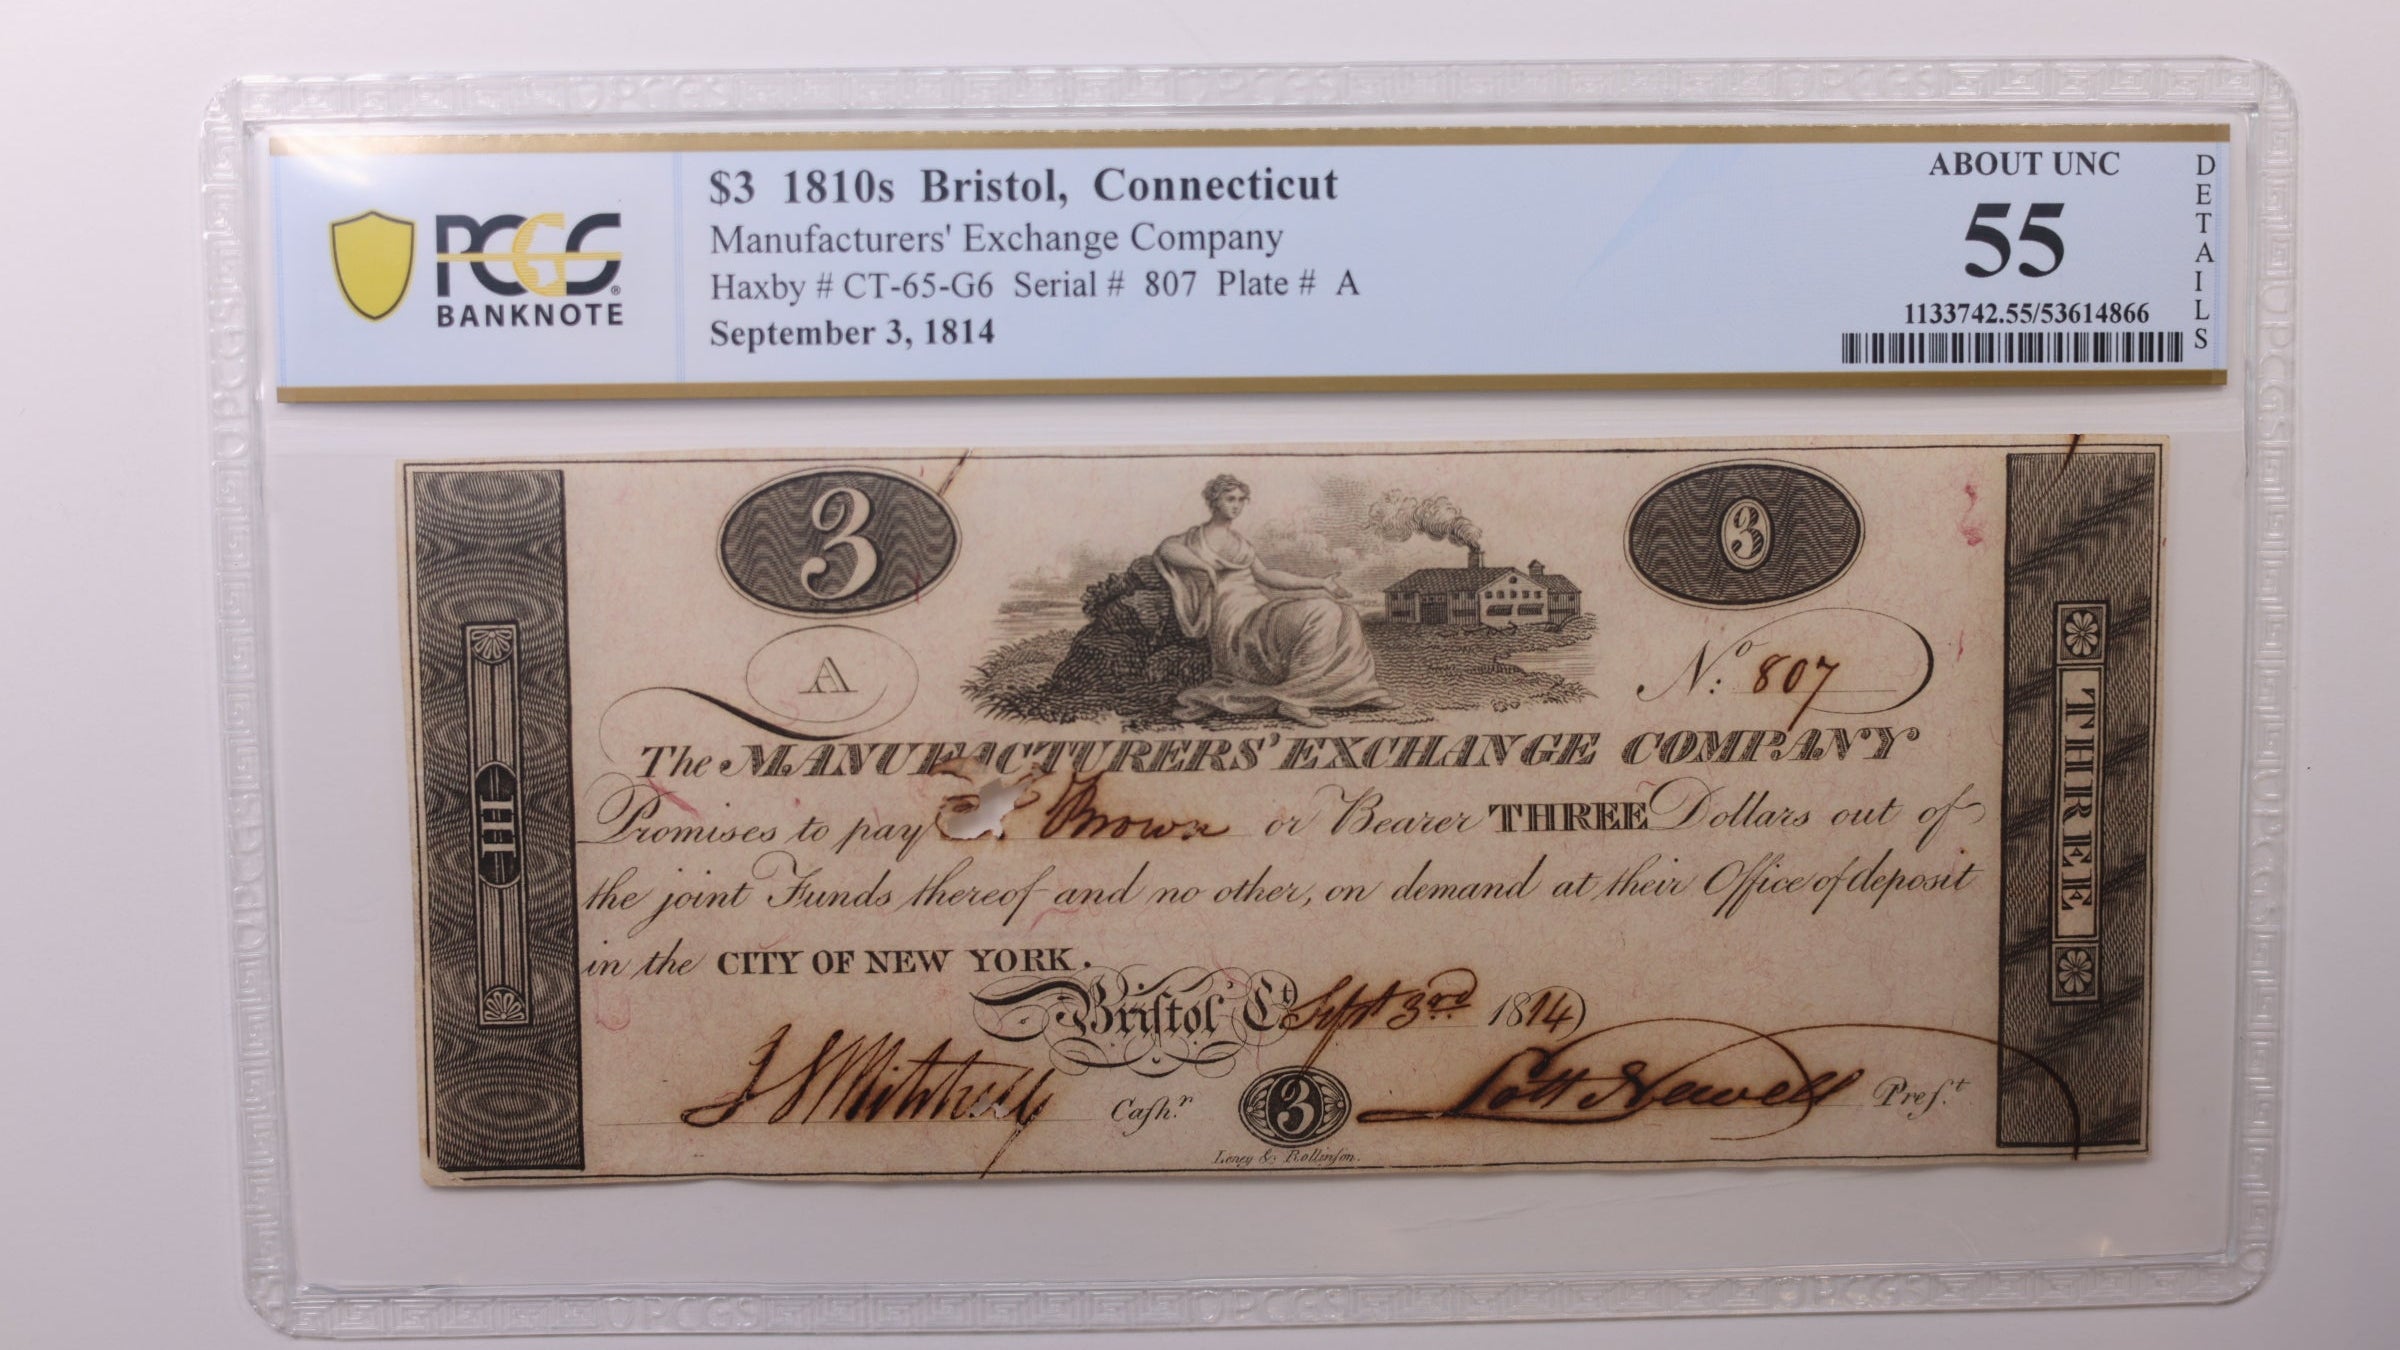 PCGS
BANKNOTE
$3 1810s Bristol, Connecticut
Manufacturers' Exchange Company
Haxby # CT-65-G6 Serial # 807 Plate # A
September 3, 1814
ABOUT UNC
55
1133742.55/53614866
DETAILS
3
3
A
No: 807
The MANUFACTURERS' EXCHANGE COMPANY
Promises to pay Brown or Bearer THREE Dollars out of
the joint Funds thereof and no other, on demand at their Office of deposit
in the CITY OF NEW YORK.
Briſtol Ct Sept 3rd 1814
J S Mitchell Caſhr. 3 Lott Newell Preſ.t
Loney & Rollinſon.
III
THREE